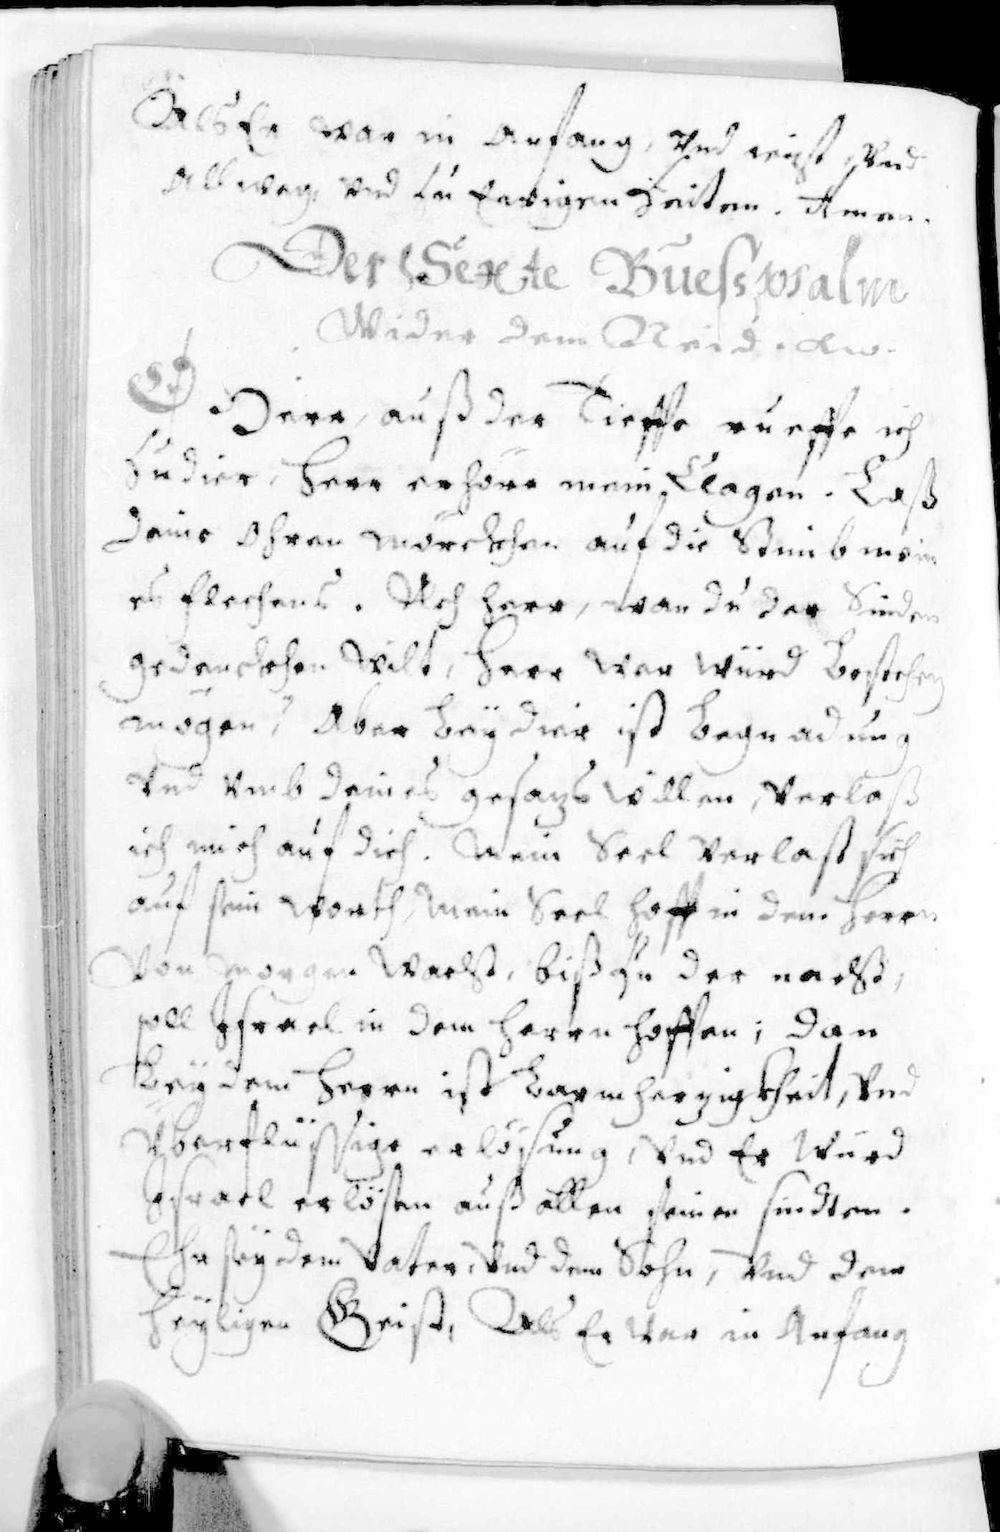 Als Er war in Anfang, Vnd iezst, Vnd
Allweg, Vnd Zu Ewigen Zeiten. Amen.
Der Sexte Buesspsalm
Wider dem Neid.
O Herr, auß der Tieffe rueffe ich
Zu dier, Herr erhöre mein Clagen. Laß
deine Ohren mörckhen auf die Stimb mein
es flechens. Ach herr, wan du der Sinden
gedenckhen wilt, Herr wer würd bestehen
mögen? Aber beÿ dier ist begnadung
Vnd Vmb deines gesazs willen, Verlaß
ich mich auf dich. Mein Seel Verlast sich
auf sein worth, Mein Seel hofft in dem Herrn
Von morgen wacht, biß zu der nacht,
soll Israel in dem Herrn hoffen; dan
beÿ dem Herrn ist barmherzigkheit, Vnd
Vberflüssige erlösung, Vnd Er würd
Israel erlösen auß allen seinen sindten.
Ehr seÿ dem Vater, Vnd dem Sohn, Vnd dem
heÿligen Geist, Als Er war in Anfang